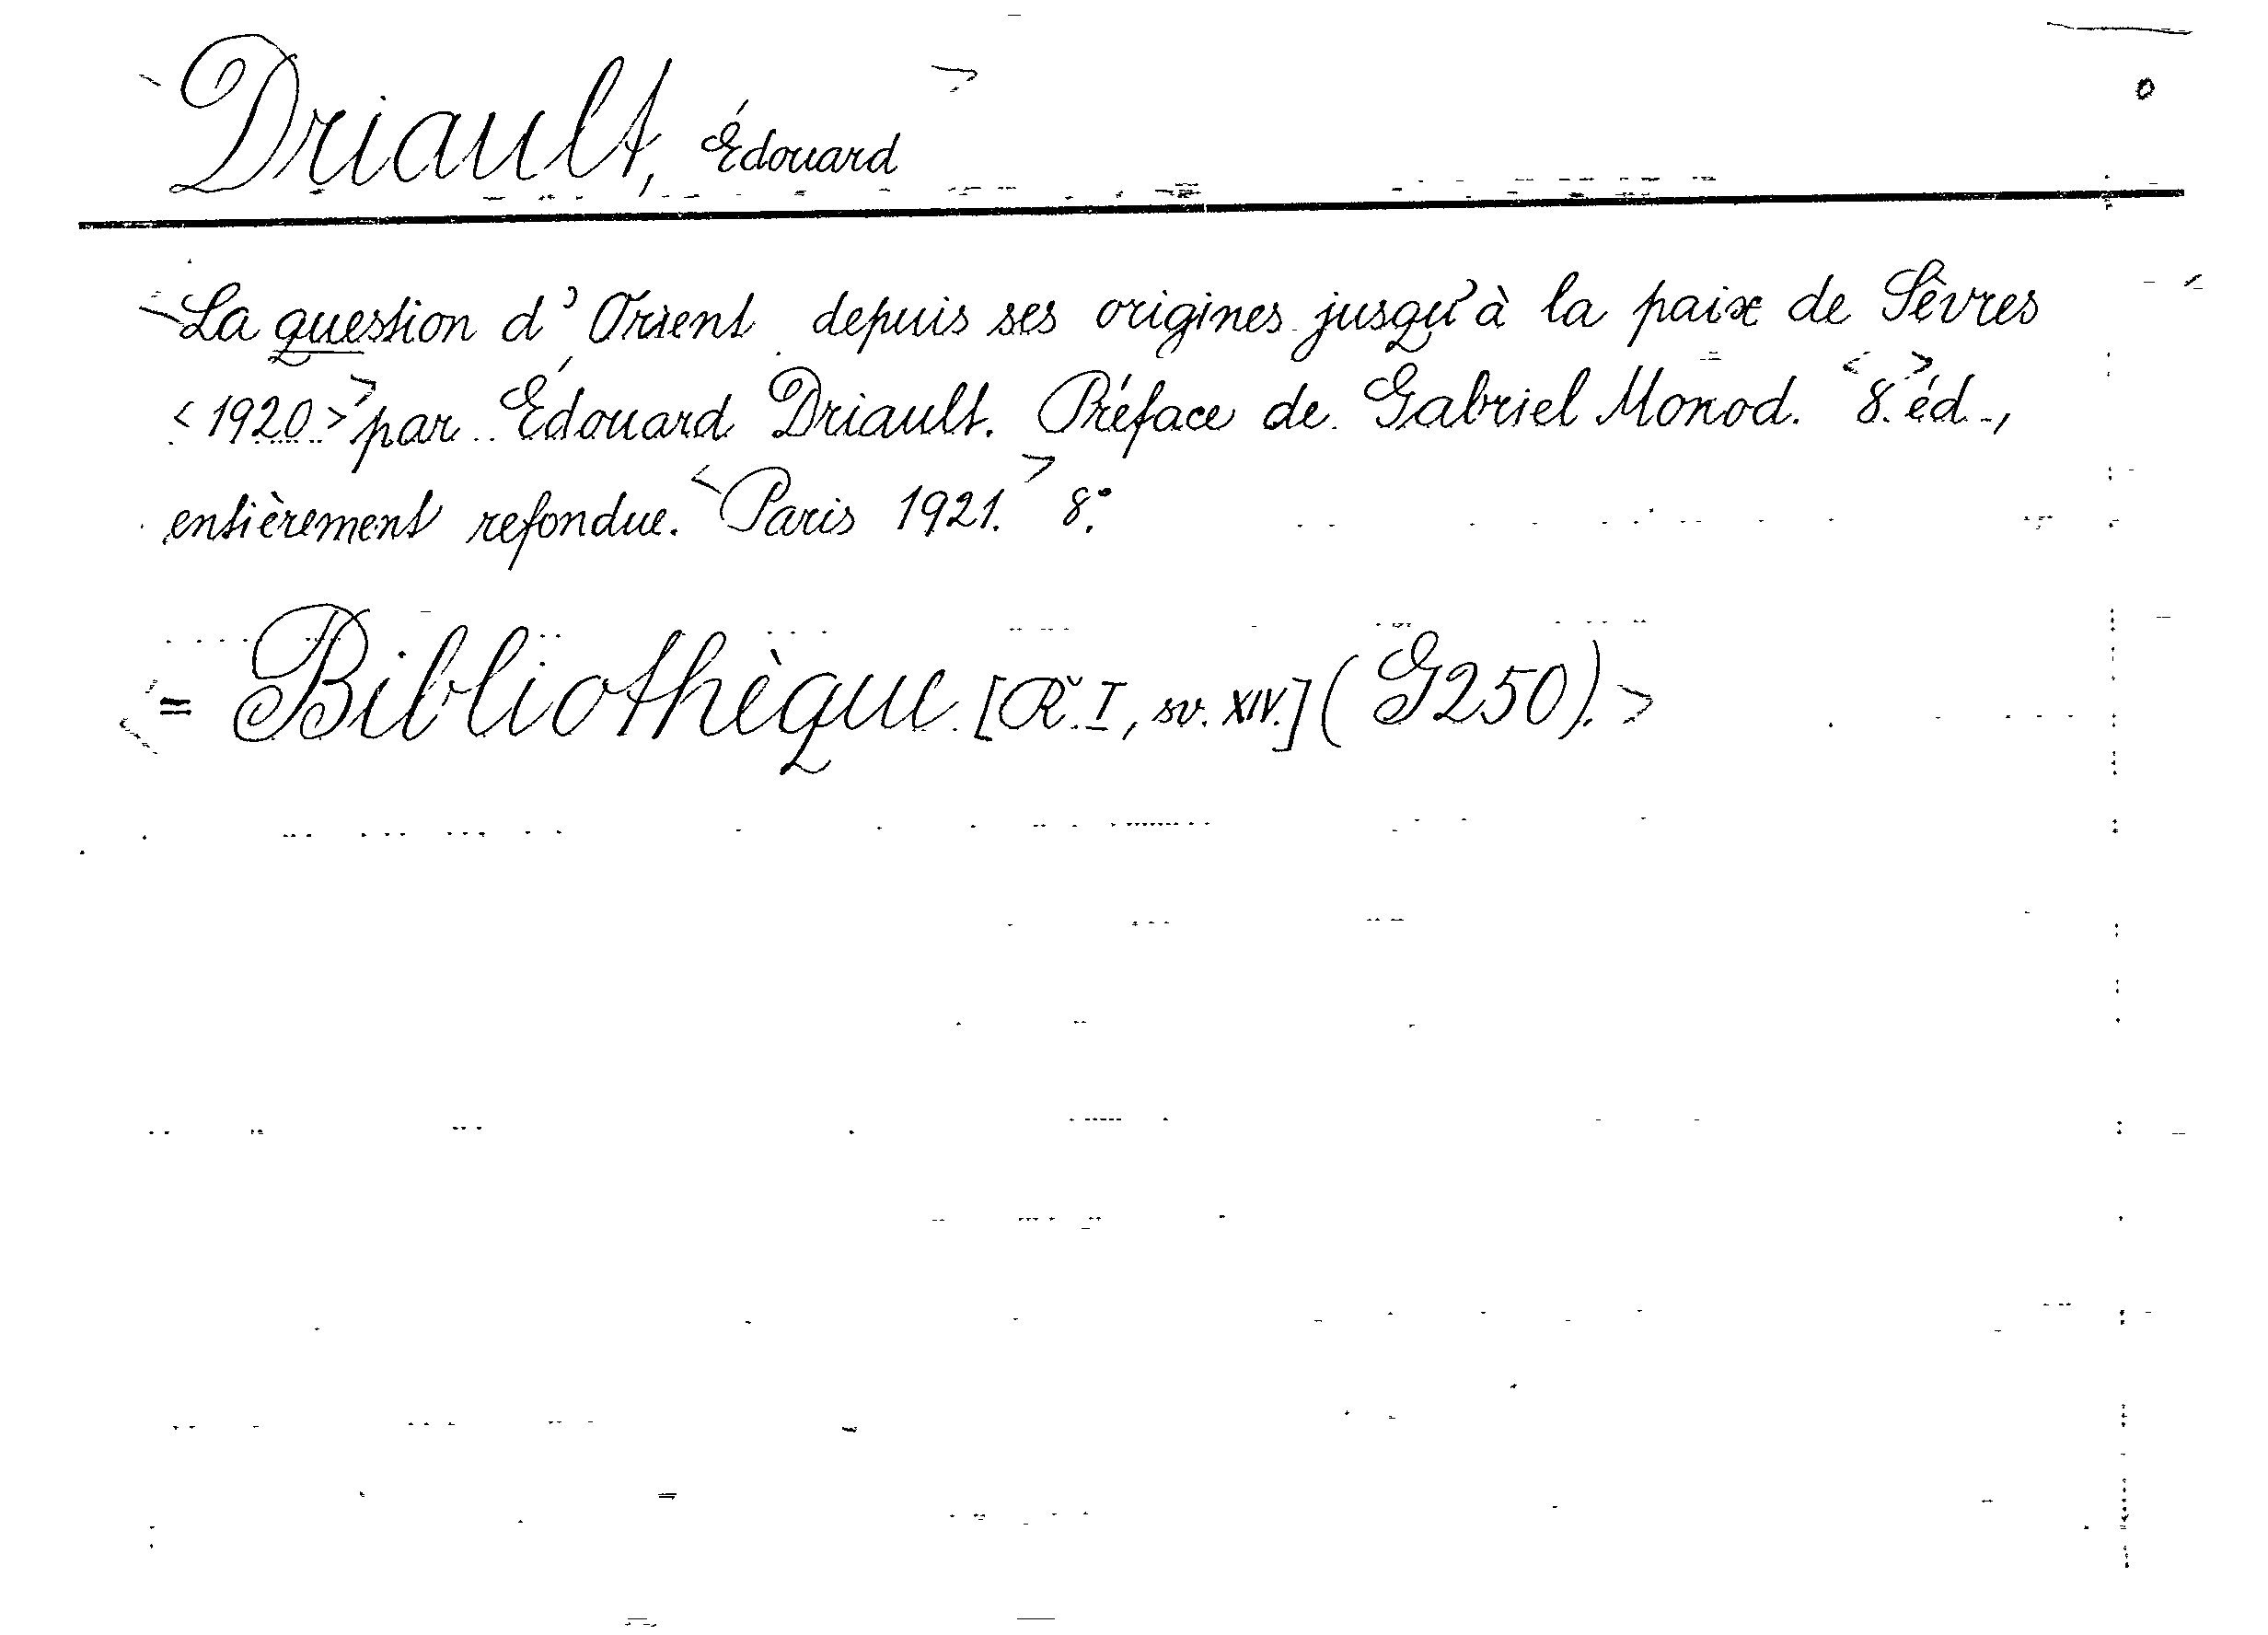 <Driault, Édouard>
<La question d'Orient depuis ses origines jusqu'à la paix de Sèvres
<1920>> par Édouard Driault. Préface de Gabriel Monod. <8.> éd.,
entièrement refondue. <Paris 1921.> 8°.
<= Bibliothèque [Ř. I, sv. XIV.] (G250).>